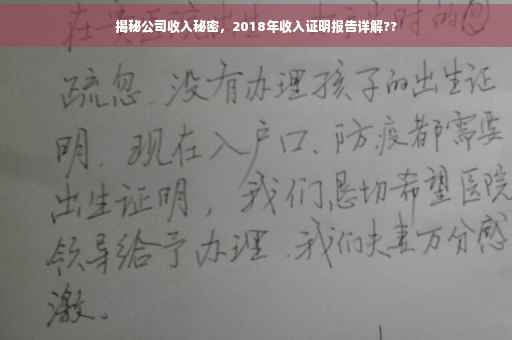 揭秘公司收入秘密，2018年收入证明报告详解??
疏忽、没有办理孩子的出生证
明、现在入户口、防疫都需要
出生证明，我们恳切希望医院
领导给予办理、我们夫妻万分感
激。